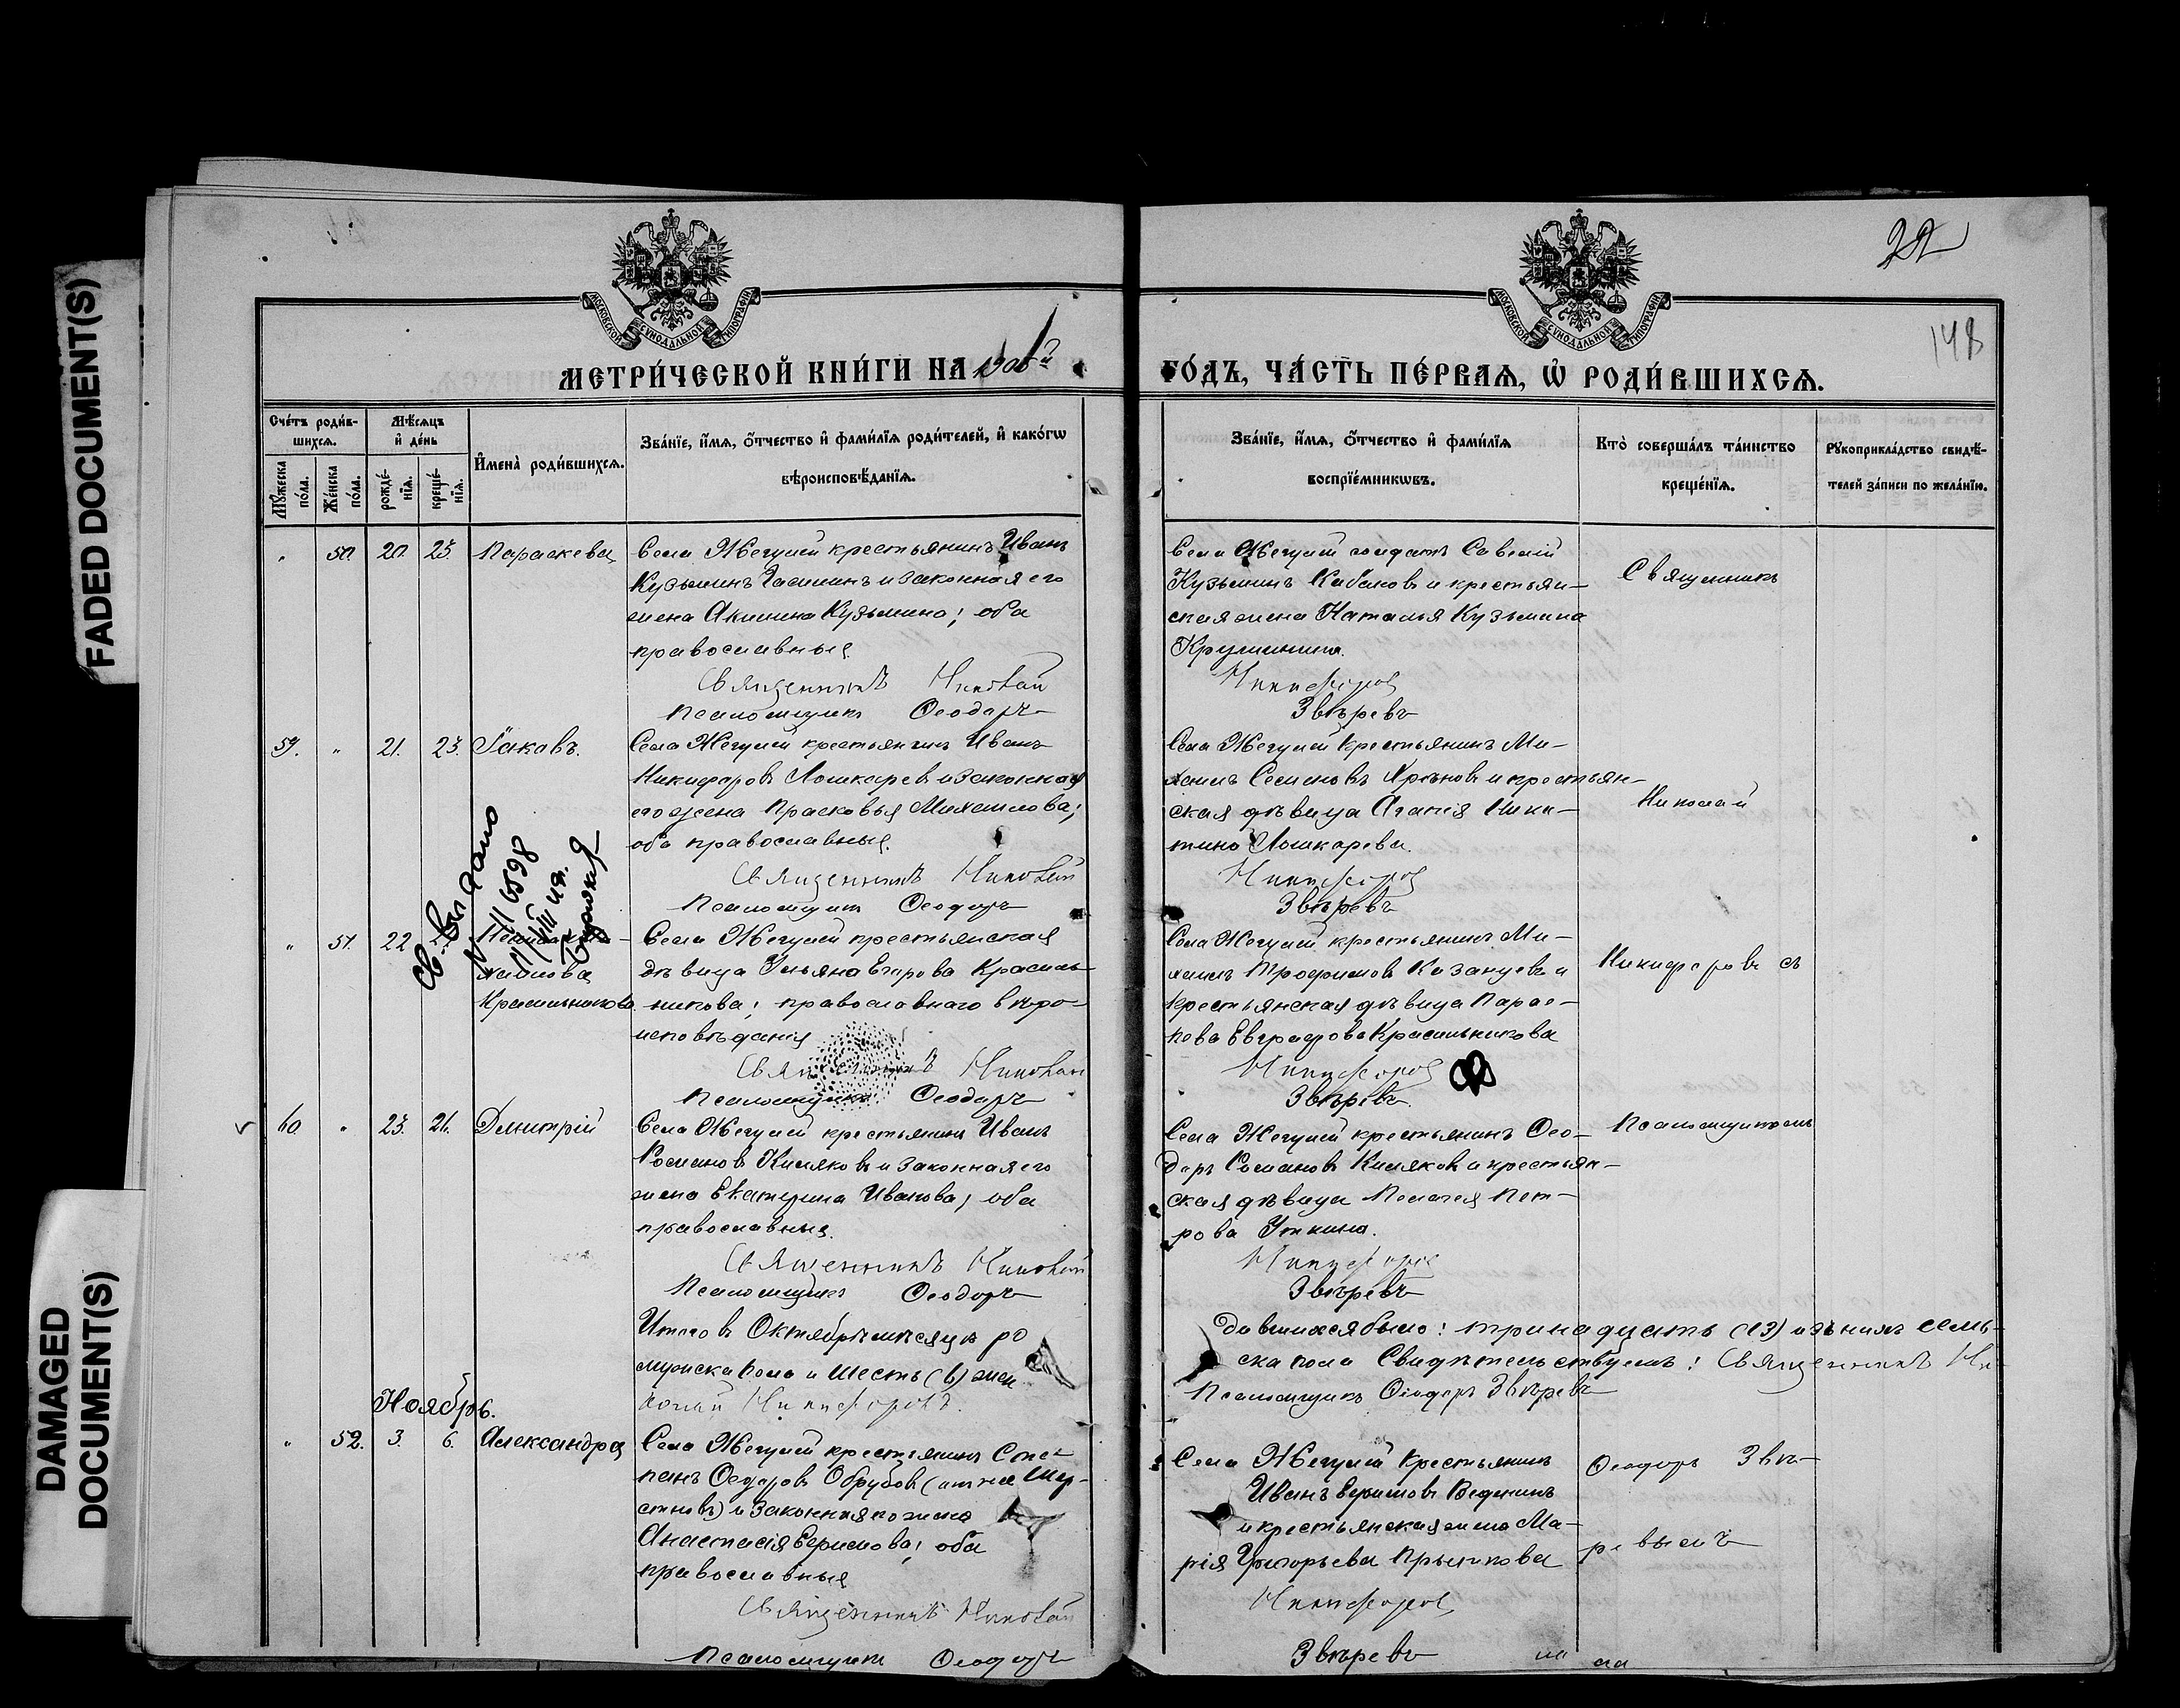 FADED DOCUMENT(S)
DAMAGED
DOCUMENT(S)
22
148
МОСКОВСКОЙ СУНОДАЛЬНОЙ ТИПОГРАФІИ
МОСКОВСКОЙ СУНОДАЛЬНОЙ ТИПОГРАФІИ
МЕТРИ́ЧЕСКОЙ КНИ́ГИ НА 1906й
ГО́ДЪ, ЧА́СТЬ ПЕ́РВАѦ, Ѡ҆ РОДИ́ВШИХСѦ.
Сче́тъ роди́в-
шихсѧ.
Мꙋ́жеска
по́ла.
Же́нска
по́ла.
Мѣ́сѧцъ
и҆ де́нь
рожде́-
нїѧ.
креще́-
нїѧ.
И҆мена̀ роди́вшихсѧ.
Зва́нїе, и҆́мѧ, ѻ҆́тчество и҆ фами́лїѧ роди́телей, и҆ како́гѡ
вѣроисповѣ́данїѧ.
Зва́нїе, и҆́мѧ, ѻ҆́тчество и҆ фами́лїѧ
воспрїе́мникѡвъ.
Кто̀ соверша́лъ та́инство
креще́нїѧ.
Рꙋкоприкла́дство свидѣ́-
телей за́писи по жела́нїю.
" 50. 20. 23. Параскева
Села Жегулей крестьянинъ Иванъ
Кузьминъ и законная его
жена Акилина Кузьмина; оба
православные.
Священникъ Николай
Псаломщикъ Ѳеодоръ
Села Жегулей солдатъ Савелій
Кузьминъ Кабановъ и крестьян-
ская жена Наталья Кузьмина
Священникъ
Никифоровъ
Звѣревъ
59. " 21. 23. Іаковъ.
Села Жегулей крестьянинъ Иванъ
Никифоровъ Лошкаревъ и законная
его жена Прасковья Михаилова;
оба православные.
Священникъ Николай
Псаломщикъ Ѳеодоръ
Села Жегулей крестьянинъ Ми-
хаилъ Семеновъ Хрѣновъ и крестьян-
ская дѣвица Агапія Ники-
тина Лошкарева.
Николай
Никифоровъ
Звѣревъ
Св. Выдано
N 11 6598
" 51. 22
хаилова
Красильникова
Села Жегулей крестьянская
дѣвица Ульяна Егорова Красиль-
никова; православнаго вѣро-
исповѣданія
Священникъ Николай
Псаломщикъ Ѳеодоръ
Села Жегулей крестьянинъ Ми-
хаилъ Трофимовъ Казанцевъ и
крестьянская дѣвица Парас-
кева Евграфова Красильникова
Никифоровъ съ
Никифоровъ
Звѣревъ.
60. " 23. 26. Димитрій
Села Жегулей крестьянинъ Иванъ
Романовъ Кисляковъ и законная его
жена Екатерина Иванова; оба
православные.
Священникъ Николай
Псаломщикъ Ѳеодоръ
Села Жегулей крестьянинъ Ѳео-
доръ Романовъ Кисляковъ и крестьян-
ская дѣвица Пелагея Пет-
рова Уткина.
Псаломщикомъ
Никифоровъ
Звѣревъ
Итого въ Октябрѣ мѣсяцѣ ро
дившихся было: тринадцать (13) изъ нихъ семь-
мужска пола и шесть (6) жен
ска пола Свидѣтельствуемъ: Священникъ Ни-
колай Никифоровъ.
Псаломщикъ Ѳеодоръ Звѣревъ
Ноябрь.
" 52. 3. 6. Александра
Села Жегулей крестьянинъ Сте-
панъ Ѳедоровъ Обрубовъ (онъ же Шер-
стневъ) и законная его жена
Анастасія Ефимова; оба
православные
Священникъ Николай
Псаломщикъ Ѳеодоръ
Села Жегулей крестьянинъ
Иванъ Ефимовъ Веденинъ
и крестьянская жена Ма-
рія Григорьева
Ѳеодоръ Звѣ-
ревымъ
Никифоровъ
Звѣревъ